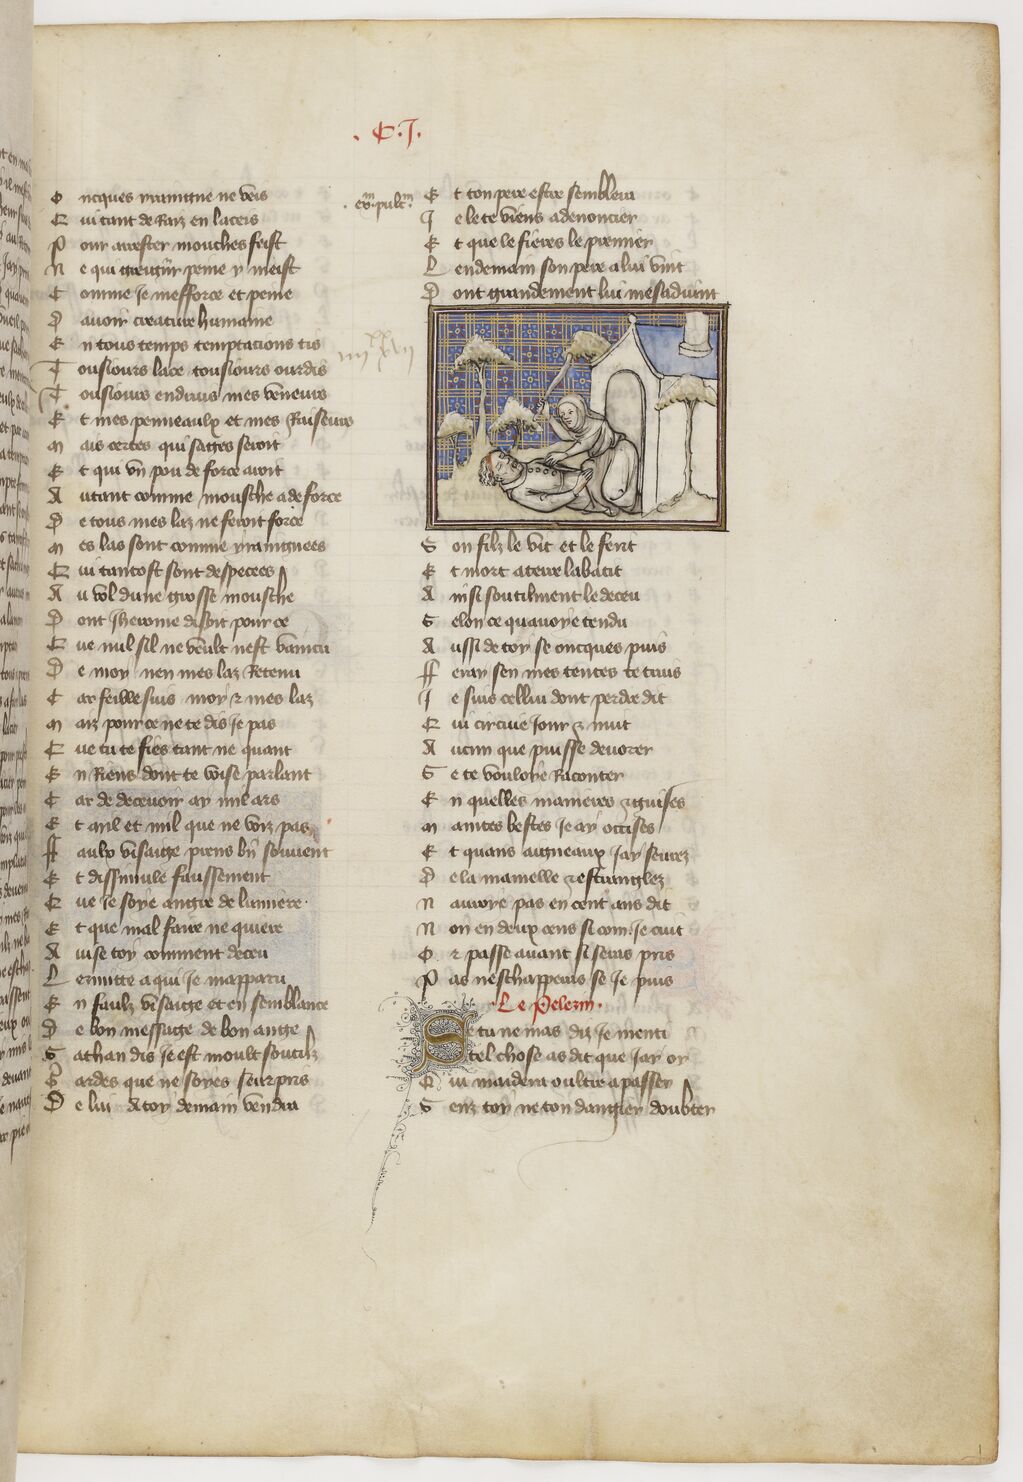 . C.J.
O ncques yraingne ne veis
Q ui tant de Raiz en laceis
P our arrester mouches feist
N e qui greigneur peine y meist
C omme Je mefforce et peine
D avoir creature humaine
E n tous temps temptacions tis
T ousiours lace tousiours ourdis
T ousiours enduis mes veneurs
E t mes penneaulx et mes Ruseurs
M ais certes qui sages seroit
E t qui vn pou de force avoit
A utant comme mousche a de force
D e tous mes laz ne feroit force
M es las sont comme yraingnees
Q ui tantost sont despecees
A u vol dune grosse mousche
D ont Jherome disoit pour ce
Q ue nul sil ne veult nest vaincu
D e moy nen mes laz Retenu
C ar feible suis moy z mes laz
M aiz pour ce ne te dis Je pas
Q ue tu te fies tant ne quant
E n Riens dont te voise parlant
C ar de decevoir ay mil ars
E t mil et mil que ne voiz pas
ff aulx visaige prens bn souvent
E t dissimule faussement
Q ue Je soye angre de lumiere
E t que mal faire ne quiere
A vise toy comment deceu
L ermitte a qui Je mapparu
E n faulz visaige et en semblance
D e bon message de bon ange
S athan dis Je est moult soutilz
G ardes que ne soyes seurpris
D e lui A toy demain vendra
. exm.pulcm.
E t ton pere estre semblera
J e le te viens adenoncier
E t que le fieres le premier
L endemain son pere a lui vint
D ont grandement lui mesadvint
S on filz le vit et le fert
E t mort a terre labatit
A insi soutilment le deceu
S elon ce quavoye tendu
A ussi de toy se oncques puis
ff eray sen mes tentes te truis
J e suis cellui dont perdre dit
Q ui circuie Jour z nuit
A ucun que puisse devorer
S e te vouloye Raconter
E n quelles manieres z guises
M aintes bestes Je ay occises
E t quans aigneaux Jay sevrez
D e la mamelle z estranglez
N auroye pas en cent ans dit
N on en deux cens si com Je cuit
O r passe avant si seras pris
P as neschapperas se Je puis
Le Pelerin.
Se tu ne mas diz Je menti
tel chose as dit que Jay oy
Q ui maidera oultre a passer
S enz toy ne ton dangier doubter